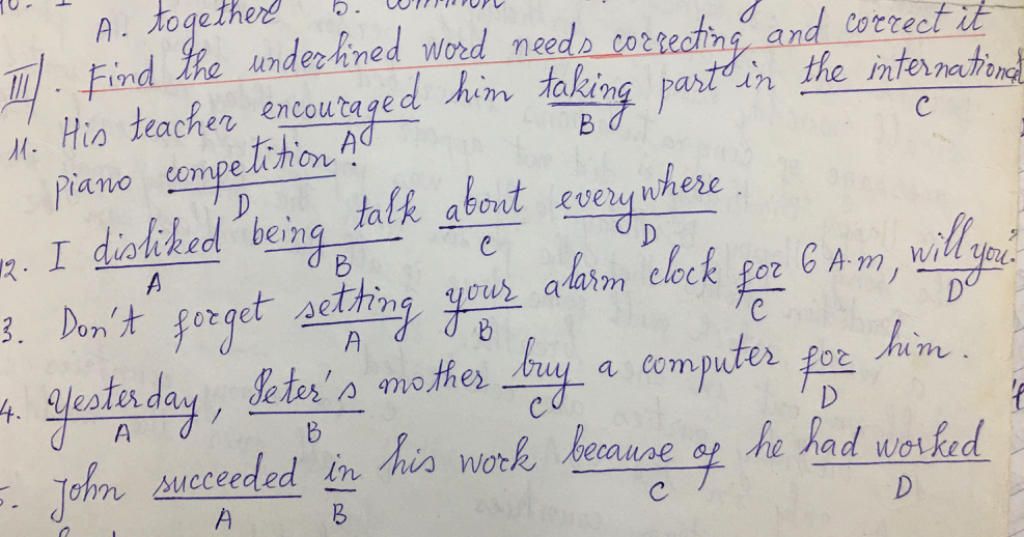 A. together B. common
III. Find the underlined word needs correcting and correct it
11. His teacher encouraged him taking part in the international
A B C
piano competition.
D
12. I disliked being talk about everywhere.
A B C D
3. Don't forget setting your alarm clock for 6 A.m, will you?
A B C D
4. Yesterday, Peter's mother buy a computer for him.
A B C D
5. John succeeded in his work because of he had worked
A B C D